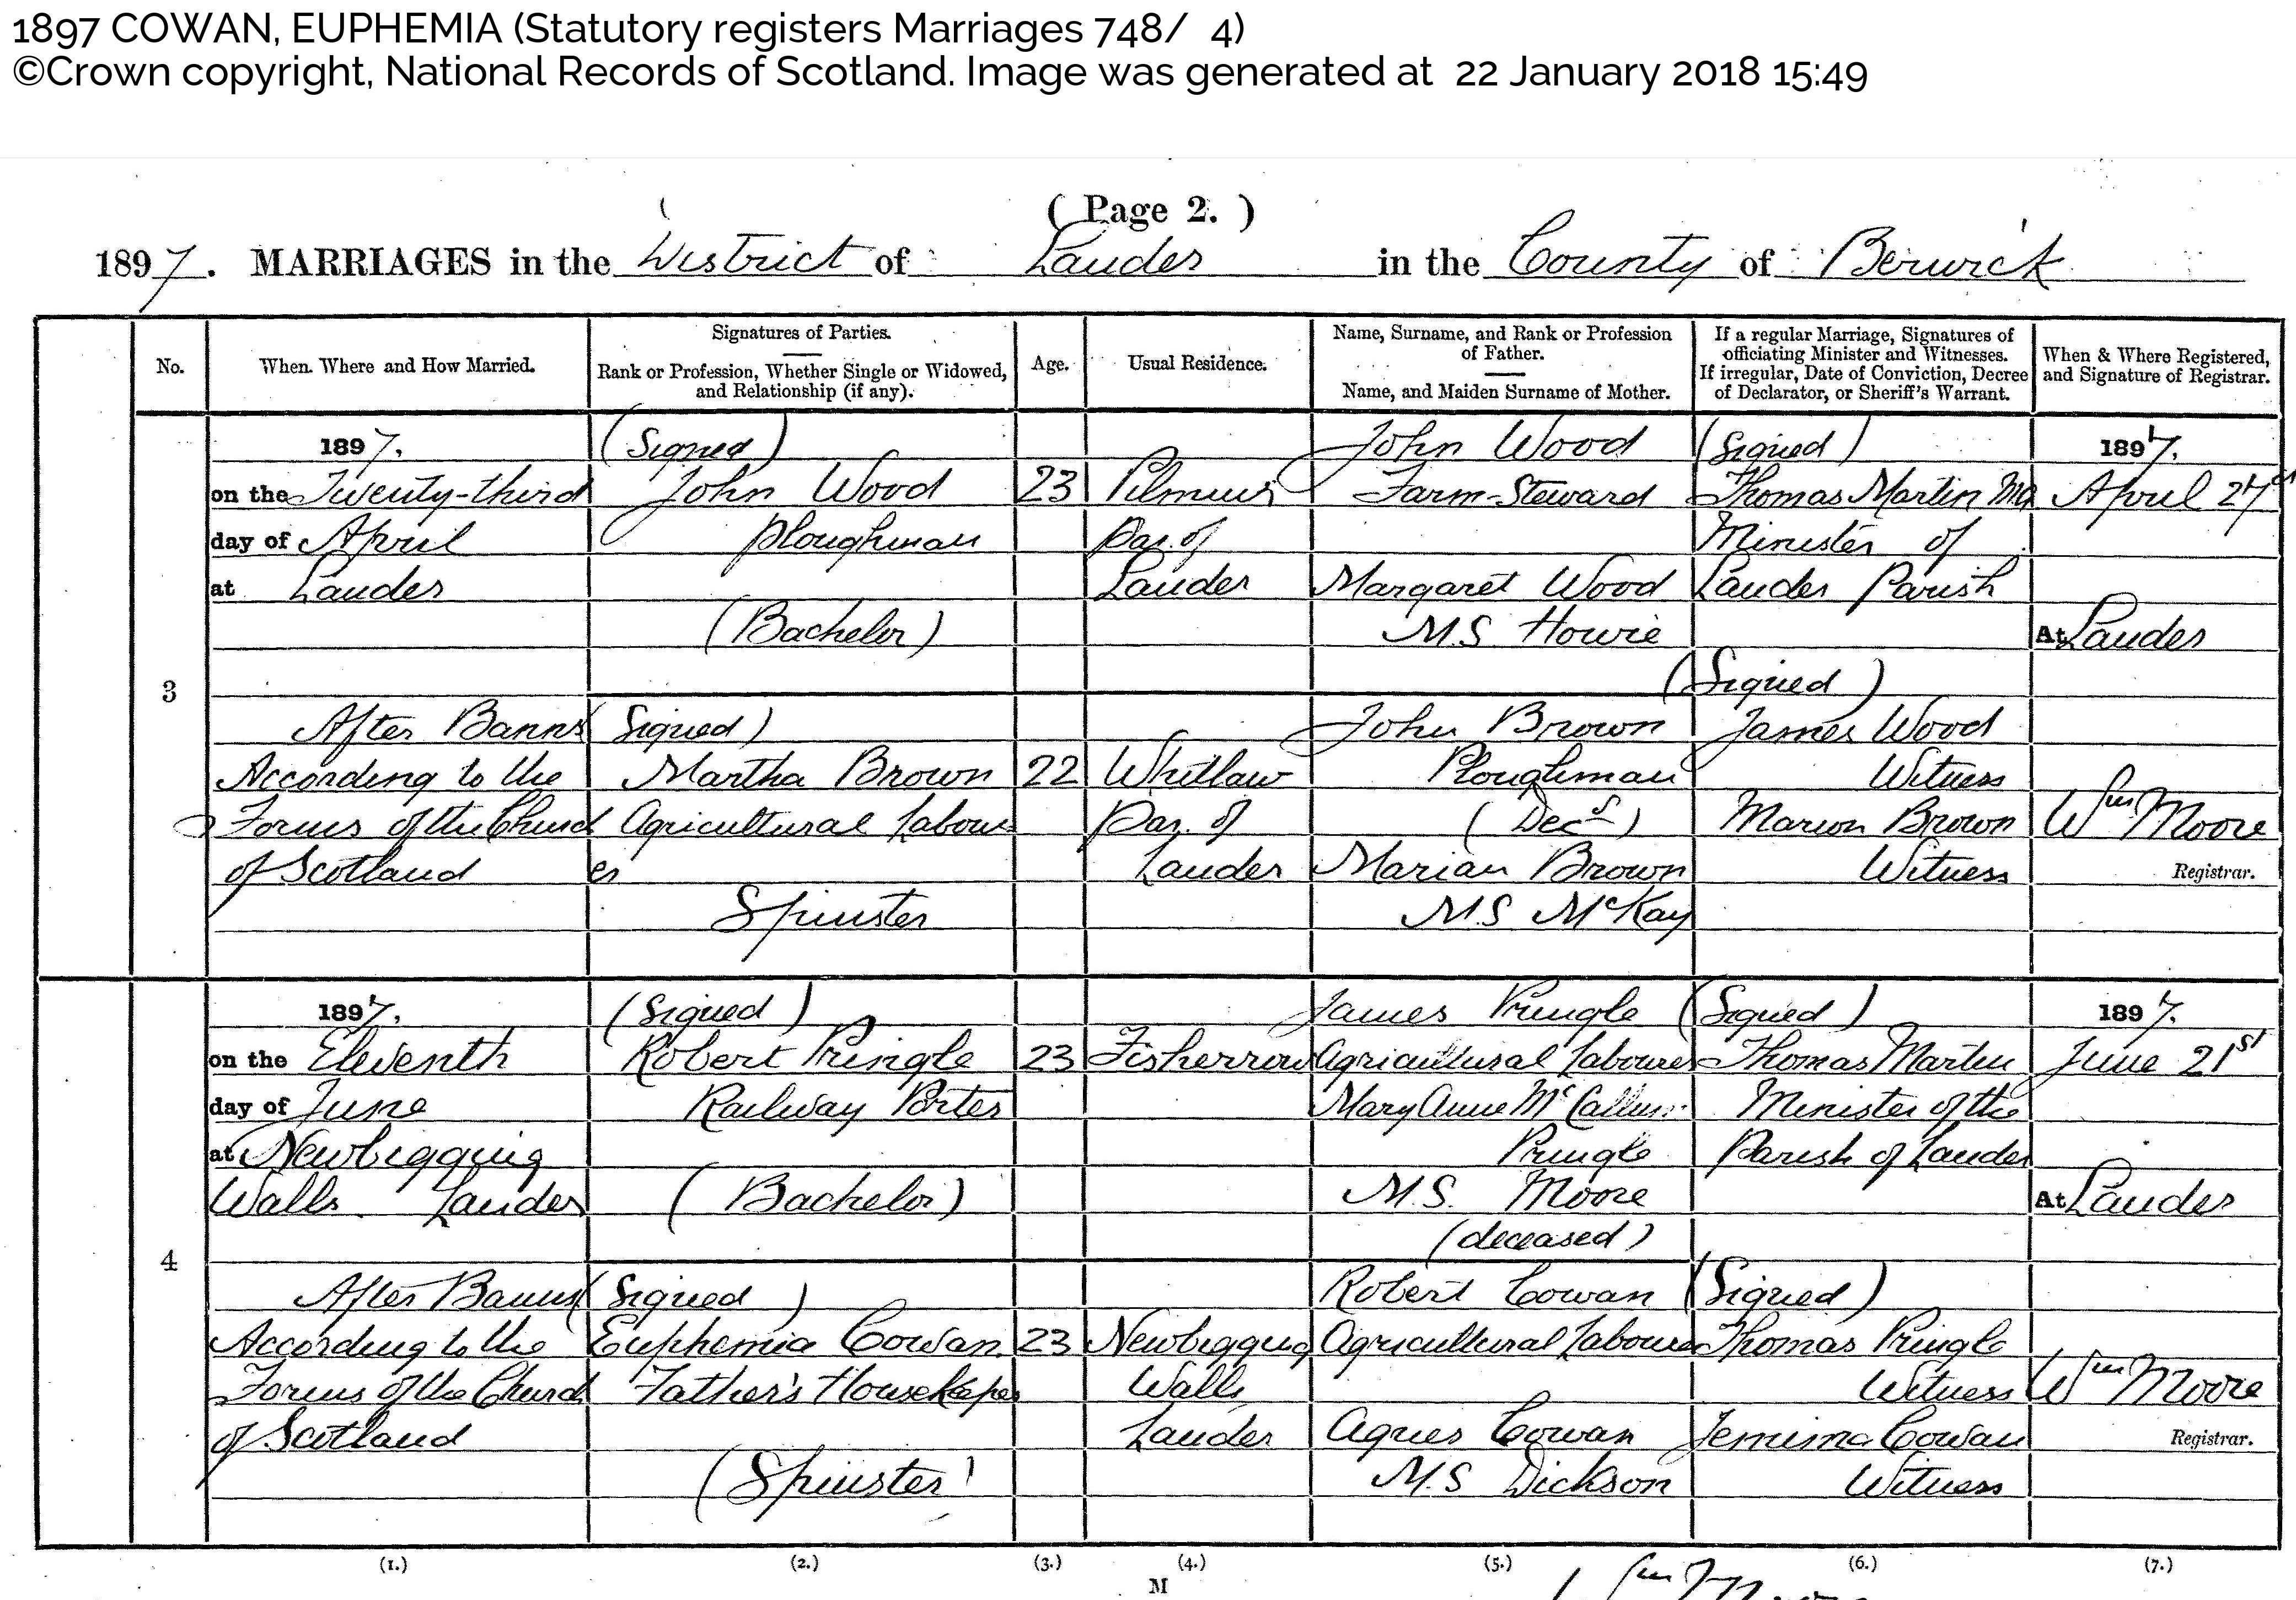 1897 COWAN, EUPHEMIA (Statutory registers Marriages 748/ 4)
©Crown copyright, National Records of Scotland. Image was generated at 22 January 2018 15:49
( Page 2. )
1897. MARRIAGES in the District of Lauder in the County of Berwick
No.
When, Where and How Married.
Signatures of Parties.
Rank or Profession, Whether Single or Widowed,
and Relationship (if any).
Age.
Usual Residence.
Name, Surname, and Rank or Profession
of Father.
Name, and Maiden Surname of Mother.
If a regular Marriage, Signatures of
officiating Minister and Witnesses.
If irregular, Date of Conviction, Decree
of Declarator, or Sheriff's Warrant.
When & Where Registered,
and Signature of Registrar.
3
1897.
on the Twenty-third
day of April
at Lauder
After Banns
According to the
Forms of the Church
of Scotland
(Signed)
John Wood
Ploughman
(Bachelor)
(Signed)
Martha Brown
Agricultural Labour
er
Spinster
23
22
Pilmuir
Par. of
Lauder
Whitlaw
Par. of
Lauder
John Wood
Farm-Steward
Margaret Wood
M.S. Howie
John Brown
Ploughman
(Decd)
Marian Brown
M.S. McKay
(Signed)
Thomas Martin MA
Minister of
Lauder Parish
(Signed)
James Wood
Witness
Marion Brown
Witness
1897.
April 27th
At Lauder
Wm Moore
Registrar.
4
1897.
on the Eleventh
day of June
at Newbigging
Walls Lauder
After Banns
According to the
Forms of the Church
of Scotland
(Signed)
Robert Pringle
Railway Porter
(Bachelor)
(Signed)
Euphemia Cowan
Father's Housekeeper
(Spinster)
23
23
Fisherrow
Newbigging
Walls
Lauder
James Pringle
Agricultural Labourer
Mary Anne McCallum
Pringle
M.S. Moore
(deceased)
Robert Cowan
Agricultural Labourer
Agnes Cowan
M.S. Dickson
(Signed)
Thomas Martin
Minister of the
Parish of Lauder
(Signed)
Thomas Pringle
Witness
Jemima Cowan
Witness
1897.
June 21st
At Lauder
Wm Moore
Registrar.
(1.) (2.) (3.) (4.) (5.) (6.) (7.)
M